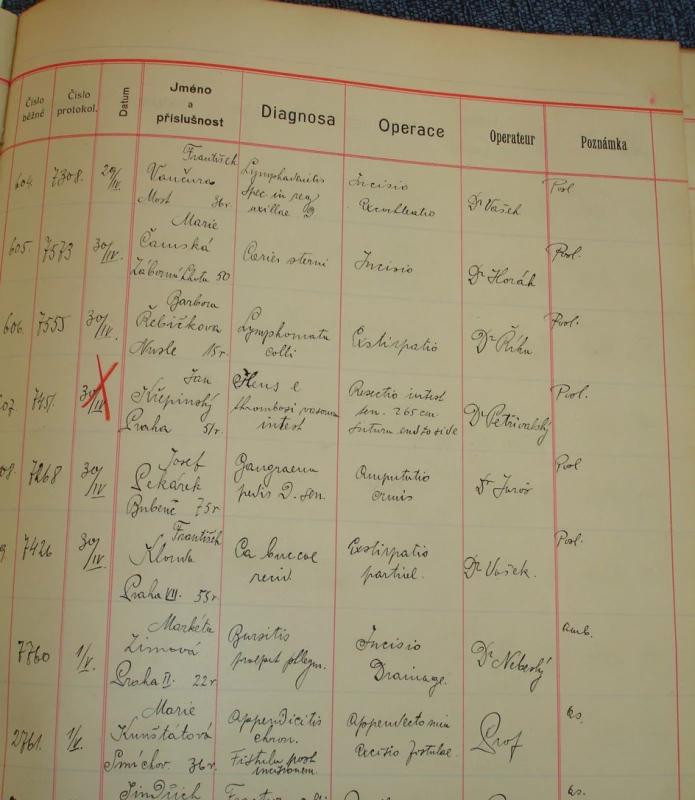 Číslo běžné
Číslo protokol.
Datum
Jméno a příslušnost
Diagnosa
Operace
Operateur
Poznámka
František
604. 7308. 29/IV. Vančura Lymphadenitis Incisio Dr Vašek Pol
Most 36r. spec in reg axillae Excochleatio
Marie
605. 7573 30/IV. Čamská Caries sterni Incisio Dr Horák Pol.
Lhota 50
Barbora
606. 7555 30/IV. Řebíčkova Lymphomata Exstirpatio Dr Říha Pol.
Nusle 15r. colli
Jan
07. 7451. 30/IV Křepinský Ileus e Resectio intest Dr Petřivalský Pol.
Praha 51r. thrombosi vasorum intest sen. 265 cm
Sutura end to side
Josef
08. 7268 30/IV Pekárek Gangraena Amputatio Dr Jaroš Pol
Bubeneč 75r pedis D. sen. cruris
František
9. 7426 30/IV. Klouda Ca buccae Exstirpatio Dr Vašek. Pol.
Praha VII. 55r recid partiel.
Markéta
7760 1/V. Zimová Bursitis Incisio Dr Nebeský amb.
Praha II. 22r praepat phlegm. Drainage.
Marie
2761. 1/V. Kunštátová Appendicitis chron. Appendectomia Prof as.
Smíchov. 36r. Fistula post incisionem. Excisio fistulae.
Jindřich as.